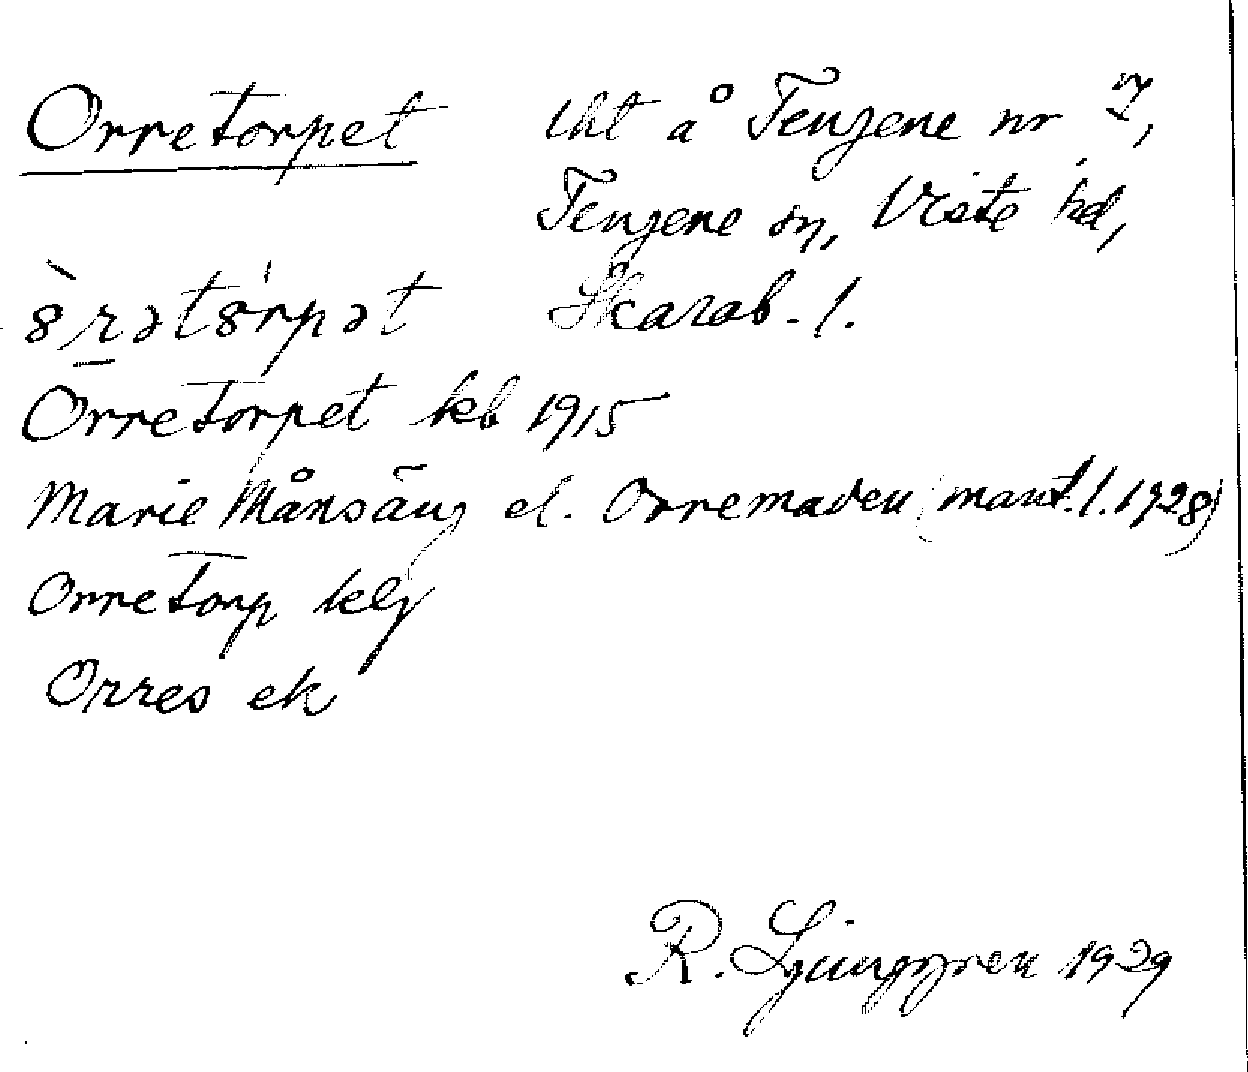 Orretorpet lht å Tengene nr 7,
Tengene sn, Viste hd,
Skarab. l.
Orretorpet kb 1915
Marie Månsäng el. Orremaden (mant.l. 1928)
Orretorp
Orres ek
R. Ljunggren 1929